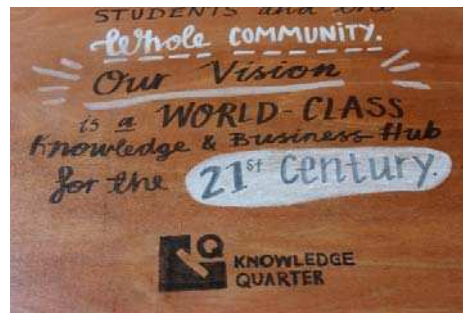 STUDENTS and the
Whole COMMUNITY.
Our Vision
is a WORLD-CLASS
Knowledge & Business Hub
for the 21st Century.
KQ KNOWLEDGE
QUARTER